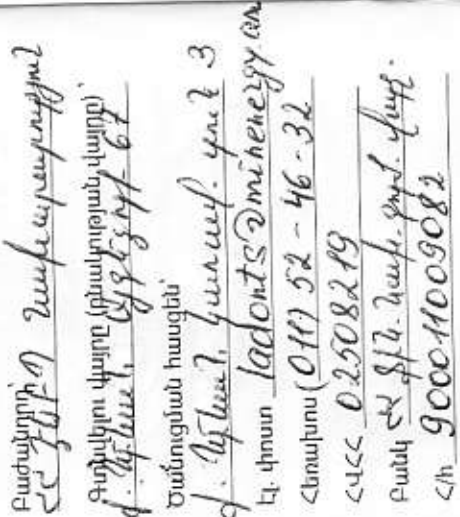 Բաժանորդի՝
ՀՀ ԷԵԲՊ նախարարություն
Գտնվելու վայրը (բնակության վայրը)՝
ք. Երևան,
Ծանուցման հասցեն՝
ք. Երևան, կառավ. տուն 3
Էլ. փոստ ladonts@minenergy.am
Հեռախոս (011) 52-46-32
ՀՎՀՀ 02508219
Բանկ ՀՀ ֆին. նախ. գործ. վարչ.
Հ/հ 900011009082